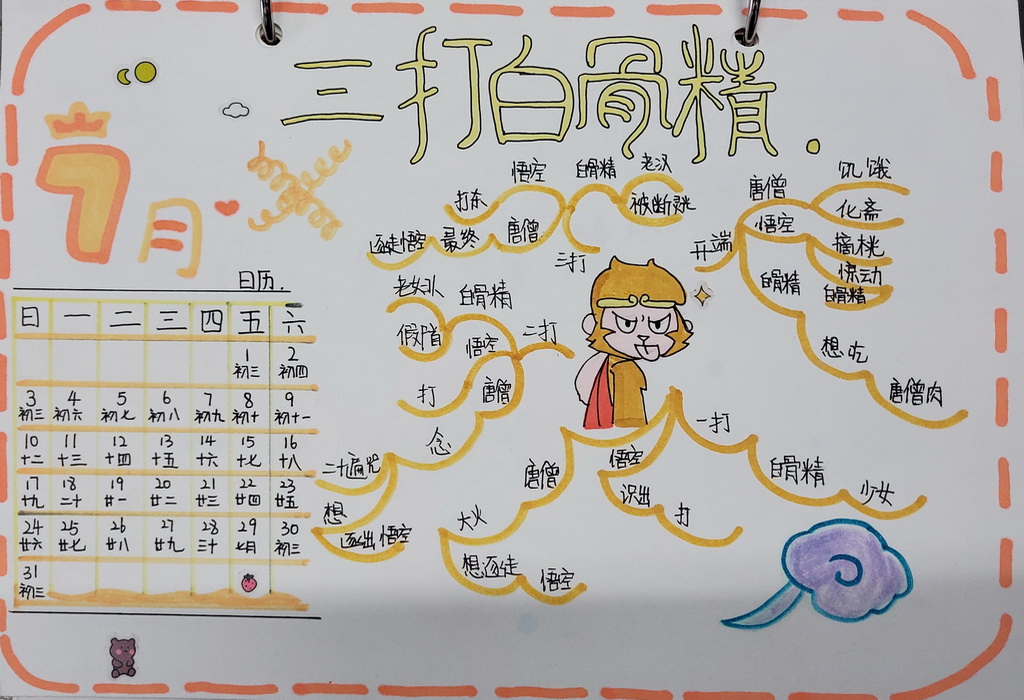 三打白骨精.
7月
日历.
日 一 二 三 四 五 六
1 2
初三 初四
3 4 5 6 7 8 9
初三 初六 初七 初八 初九 初十 初十一
10 11 12 13 14 15 16
十二 十三 十四 十五 十六 十七 十八
17 18 19 20 21 22 23
十九 二十 廿一 廿二 廿三 廿四 廿五
24 25 26 27 28 29 30
廿六 廿七 廿八 廿九 三十 七月 初三
31
初三
开端
唐僧
饥饿
化斋
悟空
摘桃
惊动
白骨精
白骨精
想吃
唐僧肉
一打
白骨精
少女
悟空
识出
打
唐僧
大火
想逐徒
悟空
二打
白骨精
老女
假首
悟空
打
唐僧
念
二十遍咒
想
逐出悟空
三打
白骨精
老汉
悟空
打杀
唐僧
最终
逐徒悟空